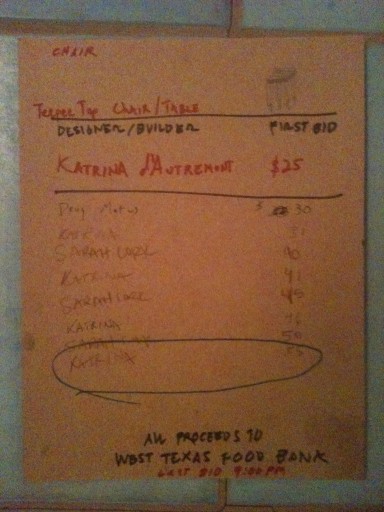 CHAIR
Teeter Top CHAIR/TABLE
DESIGNER/BUILDER FIRST BID
KATRINA D'AUTREMONT $25
$ 30
KATRINA 31
SARAH 40
KATRINA 41
SARAH 45
KATRINA 46
50
KATRINA
ALL PROCEEDS TO
WEST TEXAS FOOD BANK
LAST BID 9:00 PM